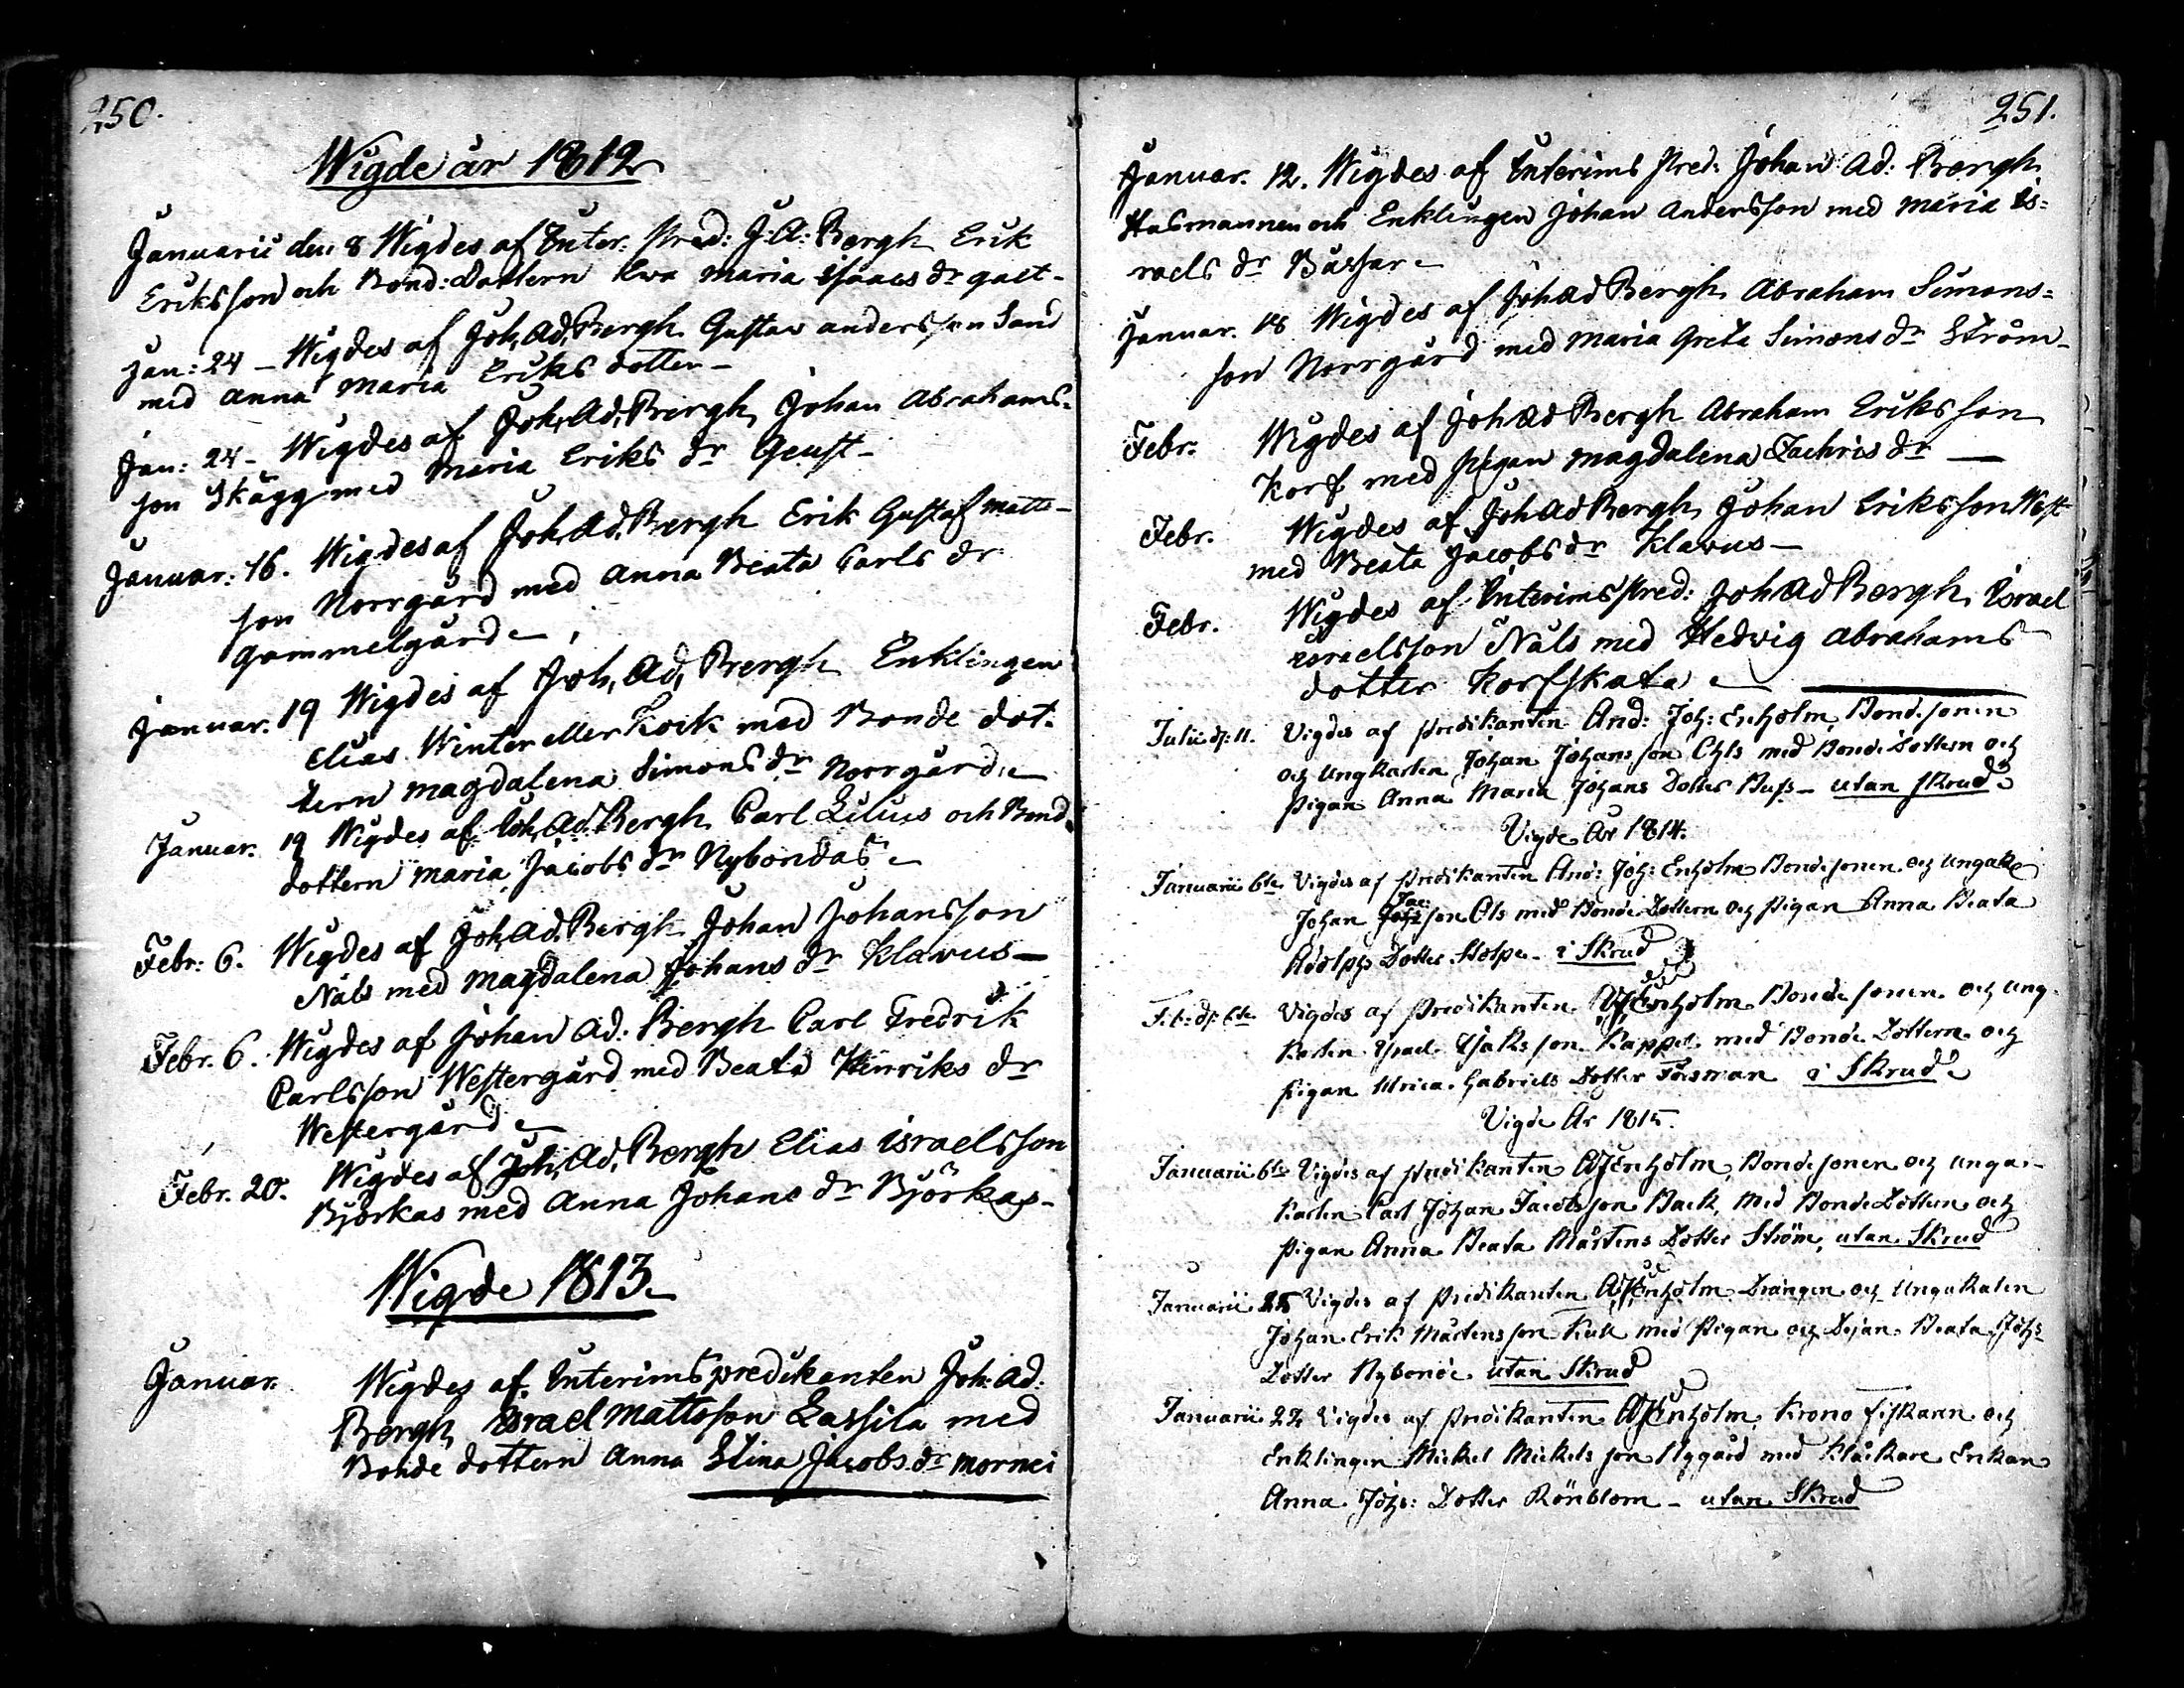 250.
Wigde år 1812
Januarii den 8 Wigdes af Inter. Pred: J: A: Bergh Erik
Eriksson och Bond: Dottern Ewa Maria Isaacs dr galt-
Jan: 24 - Wigdes af Joh, Ad, Bergh Gustav andersson Sand
med anna maria Eriks dotter -
Jan: 24 - Wigdes af Joh, Ad, Bergh, Johan Abrahams-
son Skägg med maria Eriks dr Geust -
Januar: 16. Wigdes af Joh, Ad, Bergh Erik Gustaf matts-
son Norrgård med anna Beata Carls dr
gammelgård
Januar. 19 Wigdes af Joh, Ad, Bergh Enklingen
Elias Winter eller Kock med Bonde dot-
tern magdalena Simons dr Norrgård
Januar. 19 Wigdes af Joh, Ad, Bergh Carl Lilius och Bond
dottern maria Jacobs dr Nybondas
Febr: 6. Wigdes af Joh, Ad, Bergh Johan Johansson
Nåls med magdalena Johans dr Klavus -
Febr. 6. Wigdes af Johan Ad: Bergh Carl Fredrik
Carlsson Westergård med Beata Henriks dr
Westergård
Febr. 20. Wigdes af Joh, Ad, Bergh Elias israelsson
Björkas med anna Johans dr Björkas -
Wigde 1813
Januar. Wigdes af Interimspredikanten Joh: Ad.
Bergh, Israel mattsson Lassila med
Bonde dottern anna Stina Jacobs dr mornei
251.
Januar. 12. Wigdes af Interims Pred: Johan Ad: Bergh
Husmannen och Enklingen Johan Andersson med maria is-
raels dr Bassar
Januar. 18 Wigdes af Joh Ad Bergh Abraham Simons-
son Norrgård med maria Greta Simons dr Ström -
Febr. Wigdes af Joh Ad Bergh Abraham Eriksson
Korf med pigan magdalena Zachris dr
Febr. Wigdes af Joh Ad Bergh Johan Eriksson West
med Beata Jacobs dr Klavus -
Febr. Wigdes af Interims Pred: Joh Ad Bergh, Israel
israelsson Nåls med Hedvig abrahams
dotter Korfskata
Julii d: 11. Vigdes af Predikanten And: Joh: Enholm Bondesonen
och Ungkarlen Johan Johansson Ohls med Bonde Dottern och
Pigan Anna Maria Johans Dotter Buss - utan Skrud
Vigde År 1814.
Januarii 6te Vigdes af Predikanten And: Joh: Enholm Bondesonen och ungak
Johan Jac: son Ols med Bonde Dottern och Pigan Anna Beata
Adolphs Dotter Stolpe - i Skrud
Feb: d: 6te Vigdes af Predikanten AJEnholm Bondesonen och ung-
karlen Israel Isaksson Kappel med Bonde Dottern och
Pigan Ulrica Gabriels Dotter Forsman i Skrud
Vigde År 1815.
Januarii 6te Vigdes af Predikanten AJEnholm, Bondesonen och unga-
karlen Carl Johan Jacobsson Back, med Bonde Dottern och
Pigan Anna Beata Mårtens Dotter Ström, utan Skrud
Januarii 25 Vigdes af Predikanten AJEnholm Drängen och Ungakalen
Johan Erik Mårtensson Kull med Pigan och Dejan Beata Johs
Dotter Nybonde utan Skrud
Januarii 27 Vigdes af Predikanten AJEnholm, Krono Fiskaren och
Enklingen Mickel Mickelsson Nygård med Klåckare Enkan
Anna Johs: Dotter Rönblom - utan Skrud